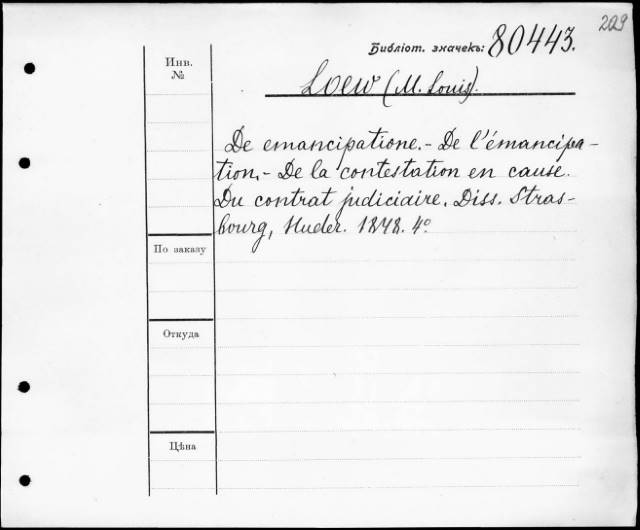 229
Библіот. значекъ: 80443.
Инв. №
Loew (M. Louis).
De emancipatione. - De l'émancipa-
tion. - De la contestation en cause.
Du contrat judiciaire. Diss. Stras-
bourg, Huder. 1878. 4°
По заказу
Откуда
Цѣна